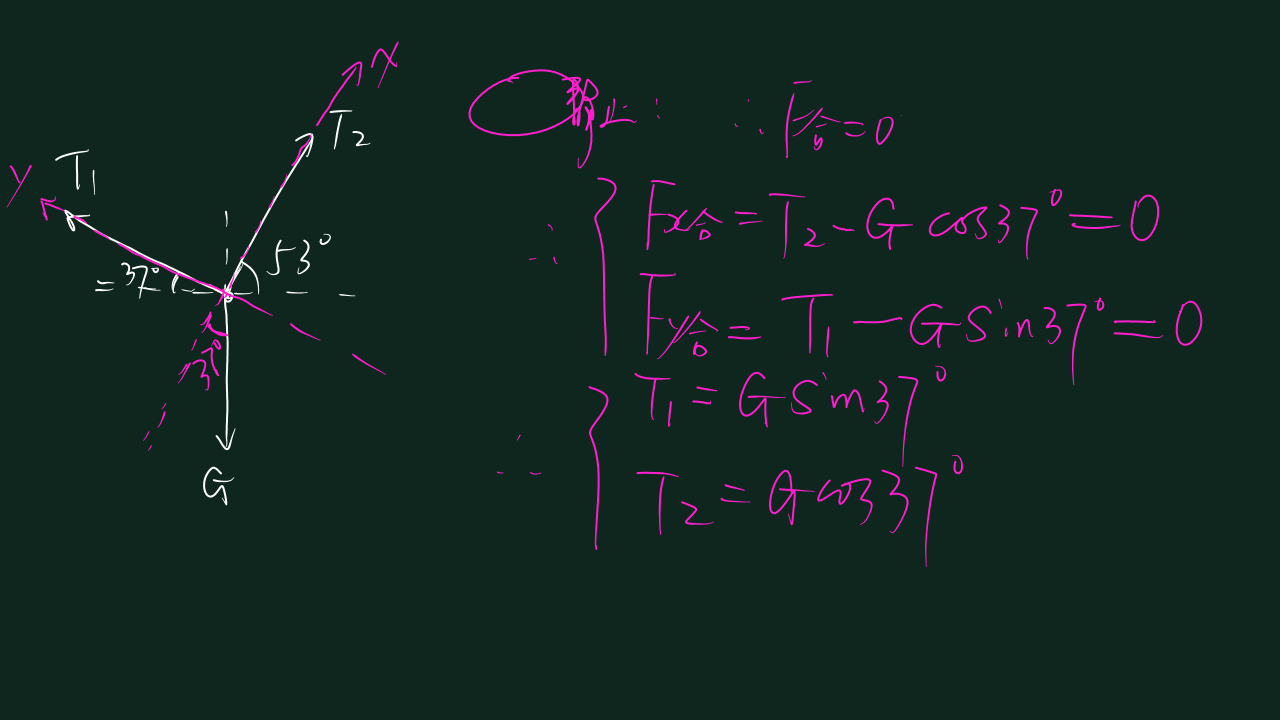 X
T₂
Y
T₁
53°
=37°
37°
G
静止: ∴F合=0
∴ Fx合=T₂-Gcos37°=0
Fy合=T₁-Gsin37°=0
∴ T₁=Gsin37°
T₂=Gcos37°